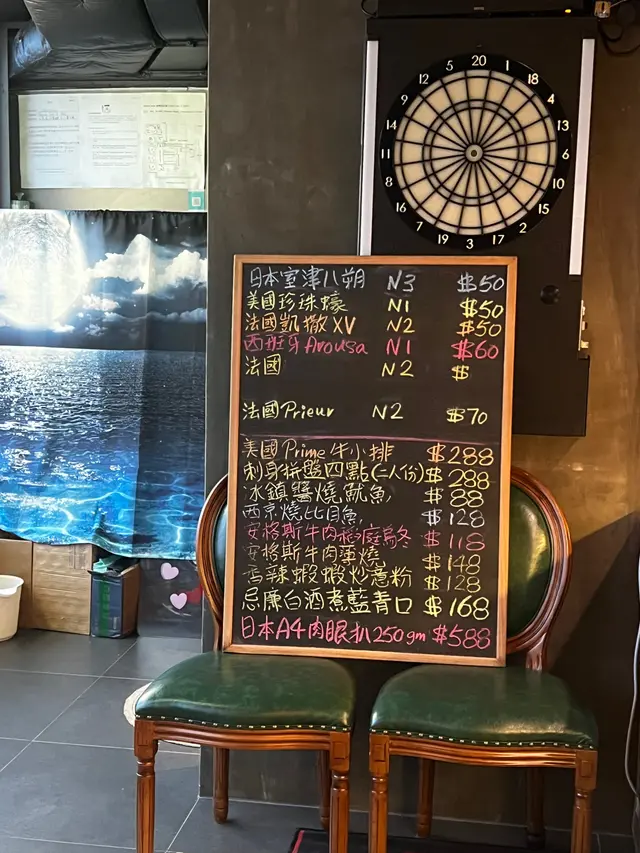 20 1 18 4 13 6 10 15 2 17 3 19 7 16 8 11 14 9 12 5
日本室津八朔 N3 $50
美國珍珠蠔 N1 $50
法國凱撒XV N2 $50
西班牙Arousa N1 $60
法國 N2 $
法國Prieur N2 $70
美國Prime牛小排 $288
刺身拼盤四點(二人份) $288
冰鎮醬燒魷魚 $88
西京燒比目魚 $128
安格斯牛肉稻庭烏冬 $118
安格斯牛肉薄燒 $148
辣蝦蝦炒薏粉 $128
忌廉白酒煮藍青口 $168
日本A4肉眼扒250gm $588